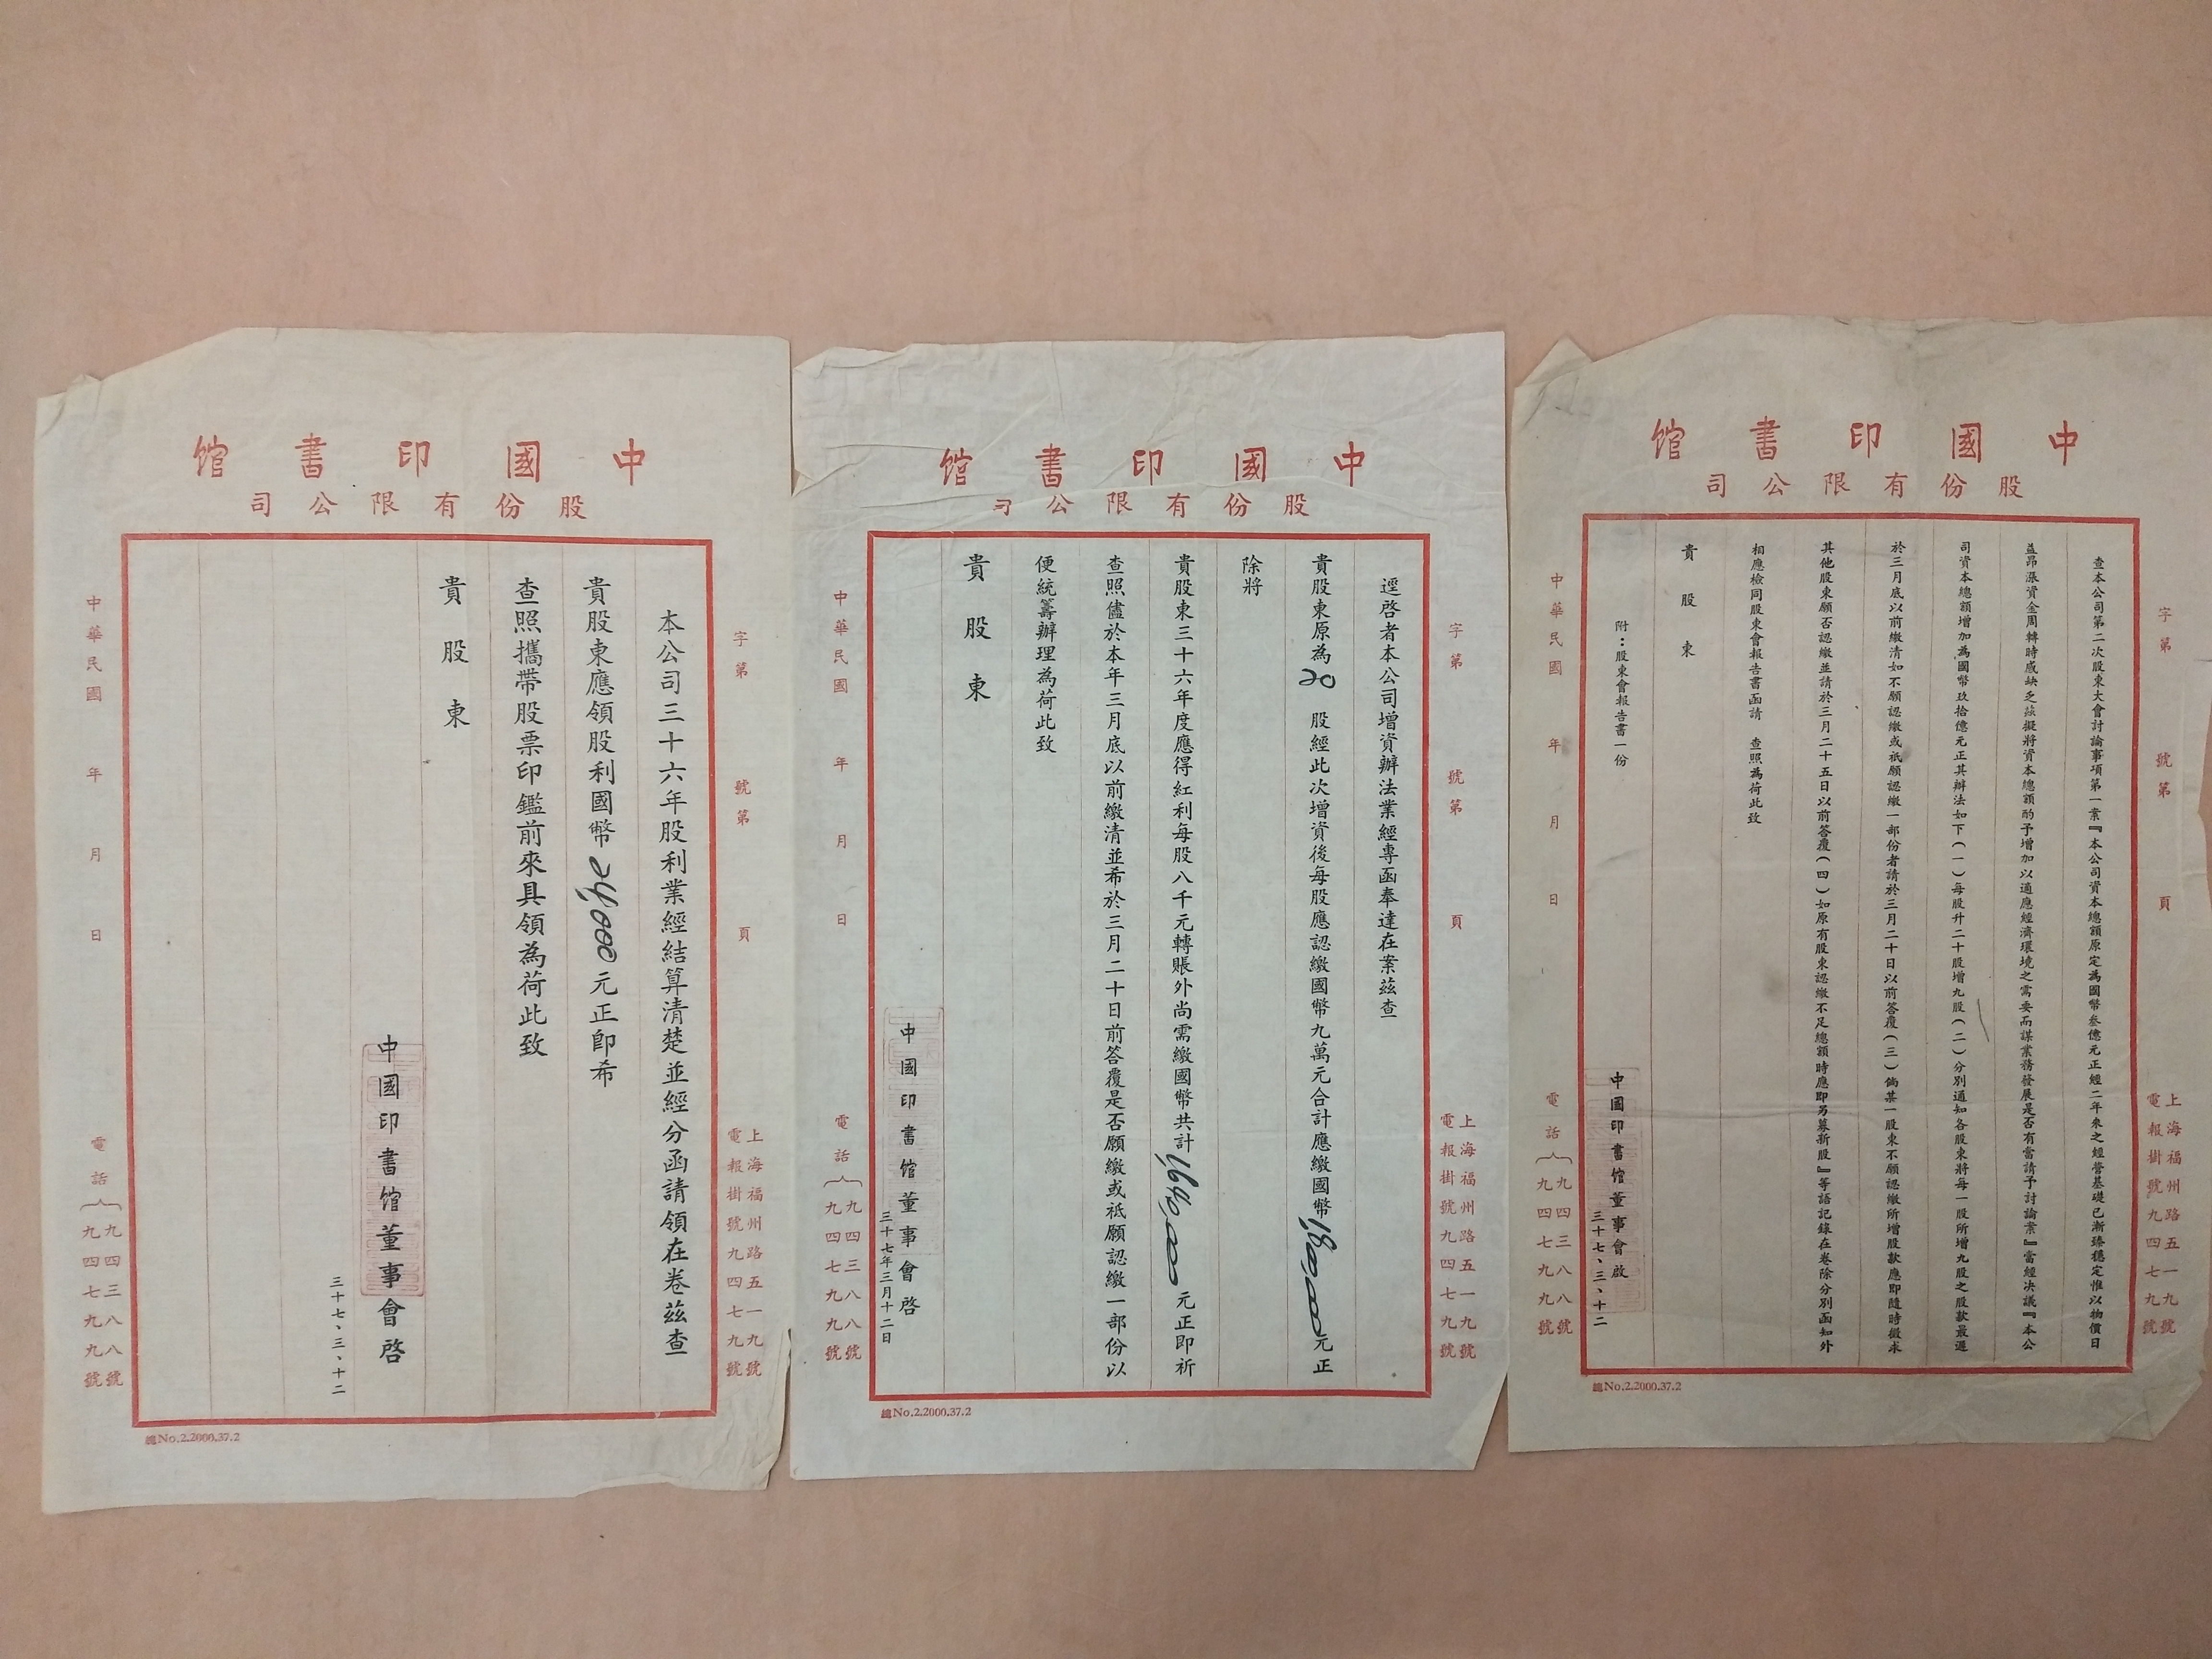 中國印書館
股份有限公司
字第
號第
頁
上海福州路五一九號
電報掛號九四七九號
查本公司第二次股東大會討論事項第一案『本公司資本總額原定為國幣叁億元正經二年來之經營基礎已漸臻穩定惟以物價日
益昂漲資金周轉時感缺乏茲擬將資本總額酌予增加以適應經濟環境之需要而謀業務發展是否有當請予討論案』當經決議『本公
司資本總額增加為國幣玖拾億元正其辦法如下(一)每股升二十股增九股(二)分別通知各股東將每一股所增九股之股款最遲
於三月底以前繳清如不願認繳或祇願認繳一部份者請於三月二十日以前答覆(三)倘某一股東不願認繳所增股款應即隨時徵求
其他股東願否認繳並請於三月二十五日以前答覆(四)如原有股東認繳不足總額時應即另募新股』等語記錄在卷除分別函知外
相應檢同股東會報告書函請 查照為荷此致
貴股東
附：股東會報告書一份
中國印書館董事會啟
三十七、三、十二
中華民國 年 月 日
電話 九四三八八號
九四七九九號
總No.2.2000.37.2
中國印書館
股份有限公司
字第
號第
頁
上海福州路五一九號
電報掛號九四七九號
逕啓者本公司增資辦法業經專函奉達在案茲查
貴股東原為20股經此次增資後每股應認繳國幣九萬元合計應繳國幣1,800,000元正
除將
貴股東三十六年度應得紅利每股八千元轉賬外尚需繳國幣共計1,640,000元正即祈
查照儘於本年三月底以前繳清並希於三月二十日前答覆是否願繳或祇願認繳一部份以
便統籌辦理為荷此致
貴股東
中國印書館董事會啓
三十七年三月十二日
中華民國 年 月 日
電話 九四三八八號
九四七九九號
總No.2.2000.37.2
中國印書館
股份有限公司
字第
號第
頁
上海福州路五一九號
電報掛號九四七九號
本公司三十六年股利業經結算清楚並經分函請領在卷茲查
貴股東應領股利國幣24,000元正即希
查照攜帶股票印鑑前來具領為荷此致
貴股東
中國印書館董事會啓
三十七、三、十二
中華民國 年 月 日
電話 九四三八八號
九四七九九號
總No.2.2000.37.2